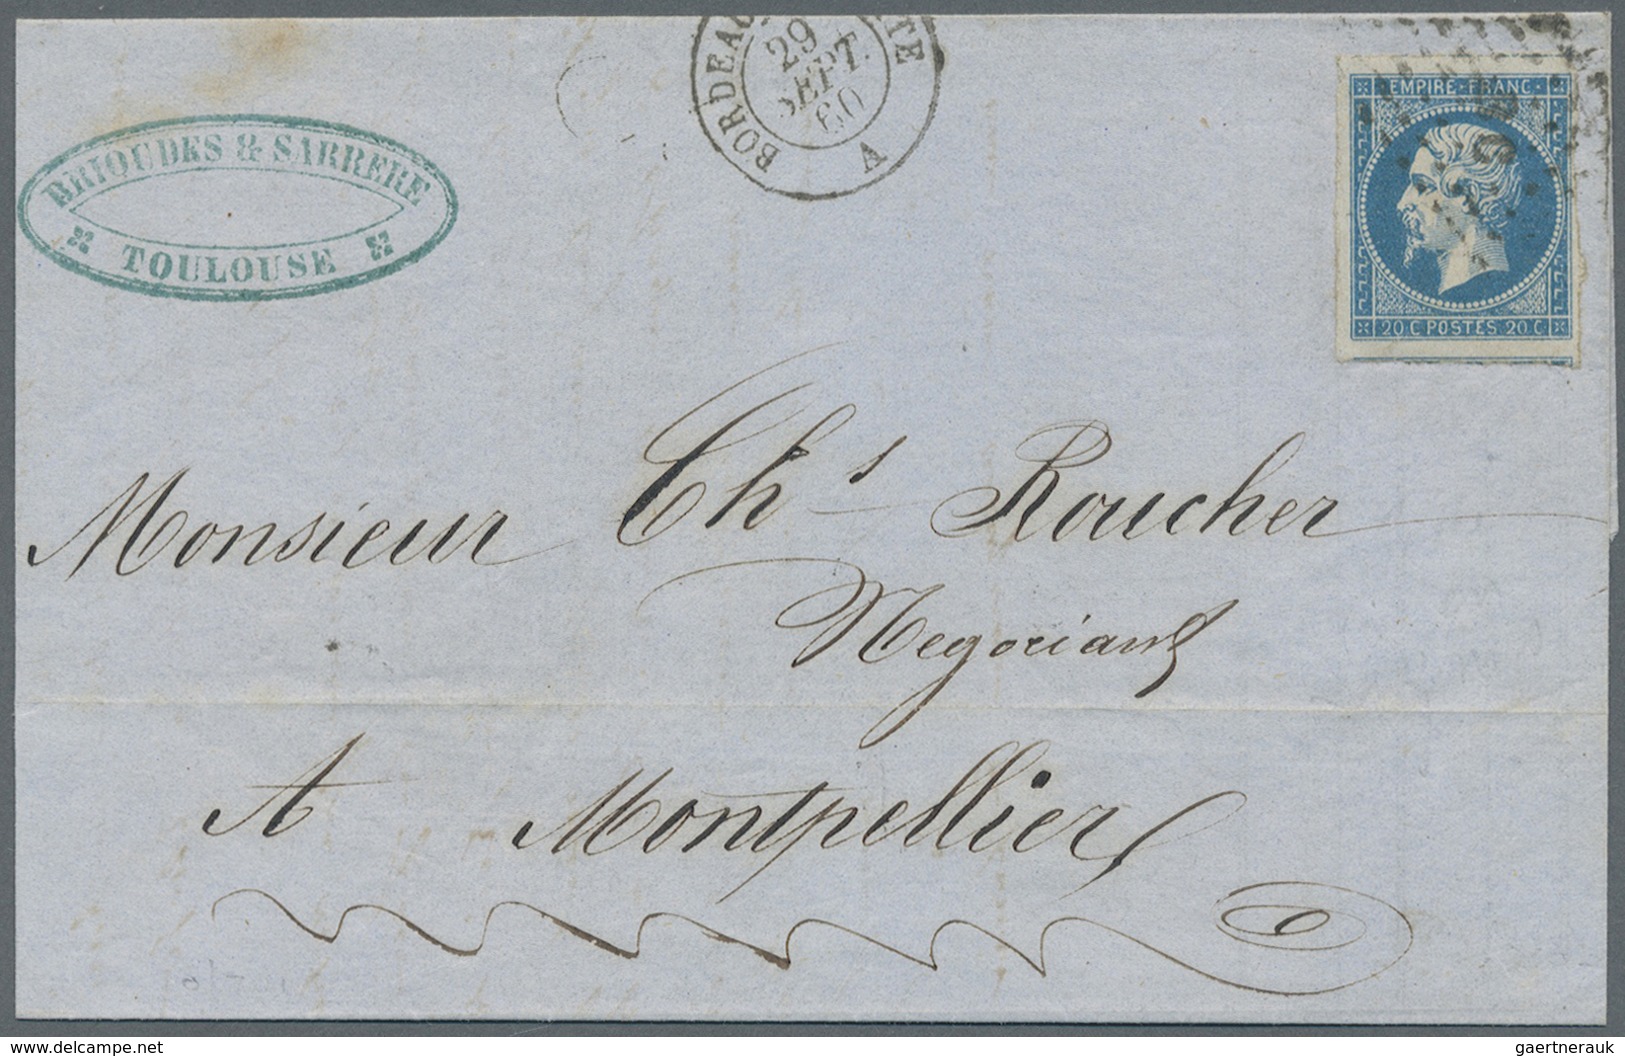 BRIOUDES & SARRERE
TOULOUSE
29
SEPT.
60
A
EMPIRE · FRANC ·
20 C POSTES 20 C
Monsieur Ch.s Roucher
Negociant
A Montpellier
gaertnerauk
www.delcampe.net